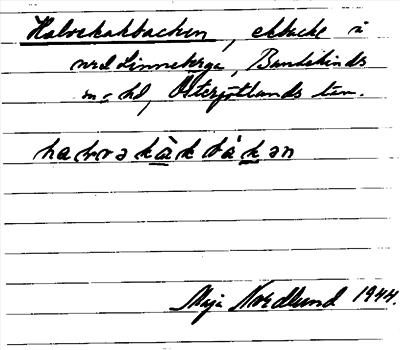 Halvekakbacken, ekbacke i
ned Linneberga, Bankekinds
sn o hd, Östergötlands län.
halvəkàkbákən
Maja Nordlund 1944.